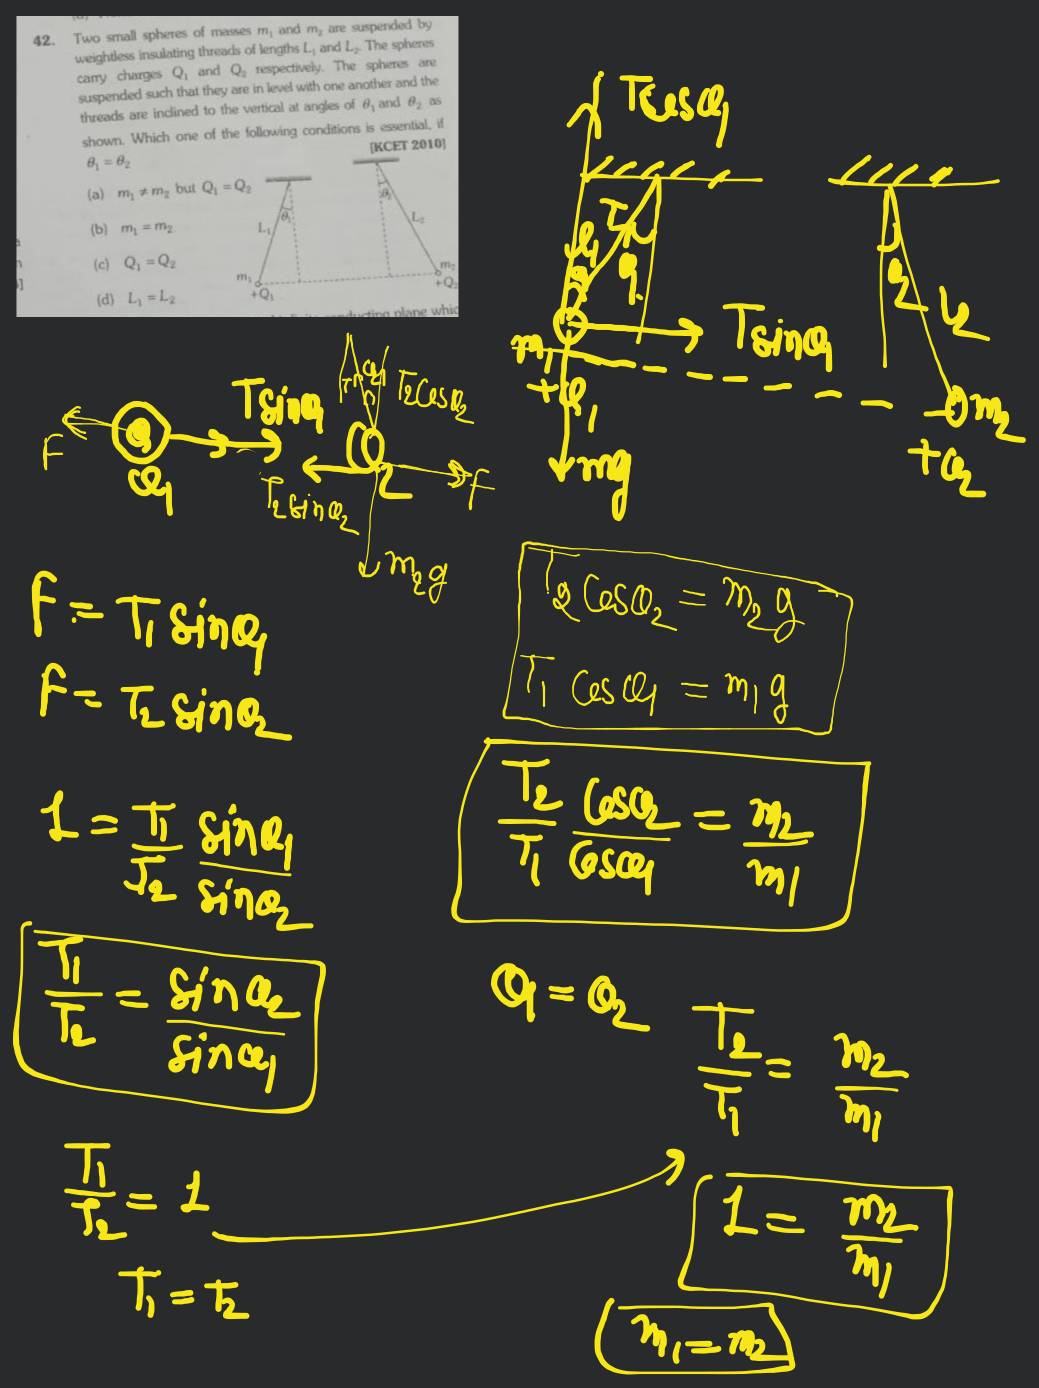 42. Two small spheres of masses m₁ and m₂ are suspended by
weightless insulating threads of lengths L₁ and L₂. The spheres
carry charges Q₁ and Q₂ respectively. The spheres are
suspended such that they are in level with one another and the
threads are inclined to the vertical at angles of θ₁ and θ₂ as
shown. Which one of the following conditions is essential, if
θ₁ = θ₂
[KCET 2010]
(a) m₁ ≠ m₂ but Q₁ = Q₂
(b) m₁ = m₂
(c) Q₁ = Q₂
(d) L₁ = L₂
θ₁
θ₂
L₁
L₂
m₁
+Q₁
m₂
+Q₂
conducting plane
Tcosθ₁
T₁
θ₁
θ₁
Tsinθ₁
m₁
+Q₁
mg
θ₂
L₂
m₂
+Q₂
F
Q₁
Tsinθ₁
T₂cosθ₂
T₂sinθ₂
F
m₂g
F = T₁ sinθ₁
F = T₂ sinθ₂
T₂ cosθ₂ = m₂g
T₁ cosθ₁ = m₁g
1 = T₁/T₂ sinθ₁/sinθ₂
T₂/T₁ cosθ₂/cosθ₁ = m₂/m₁
T₁/T₂ = sinθ₂/sinθ₁
θ₁ = θ₂
T₂/T₁ = m₂/m₁
T₁/T₂ = 1
1 = m₂/m₁
T₁ = T₂
m₁ = m₂